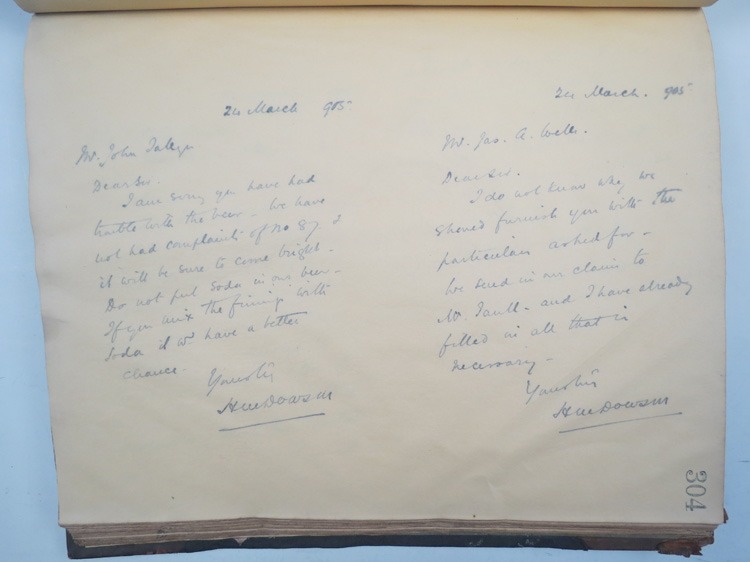 24 March 905
Mr. John
Dear Sir.
I am sorry you have had
trouble with the beer - We have
not had complaints of No 87. &
it will be sure to come bright -
Do not put soda in our beer -
If you mix the finings with
Soda it wd. have a better
chance.
Yours trly
HMDowson
24 March. 905
Mr. Jas. A. Wells.
Dear Sir.
I do not know why we
should furnish you with the
particulars asked for -
We send in our claim to
Mr. - and I have already
filled in all that is
necessary -
Yours trly
HMDowson
304